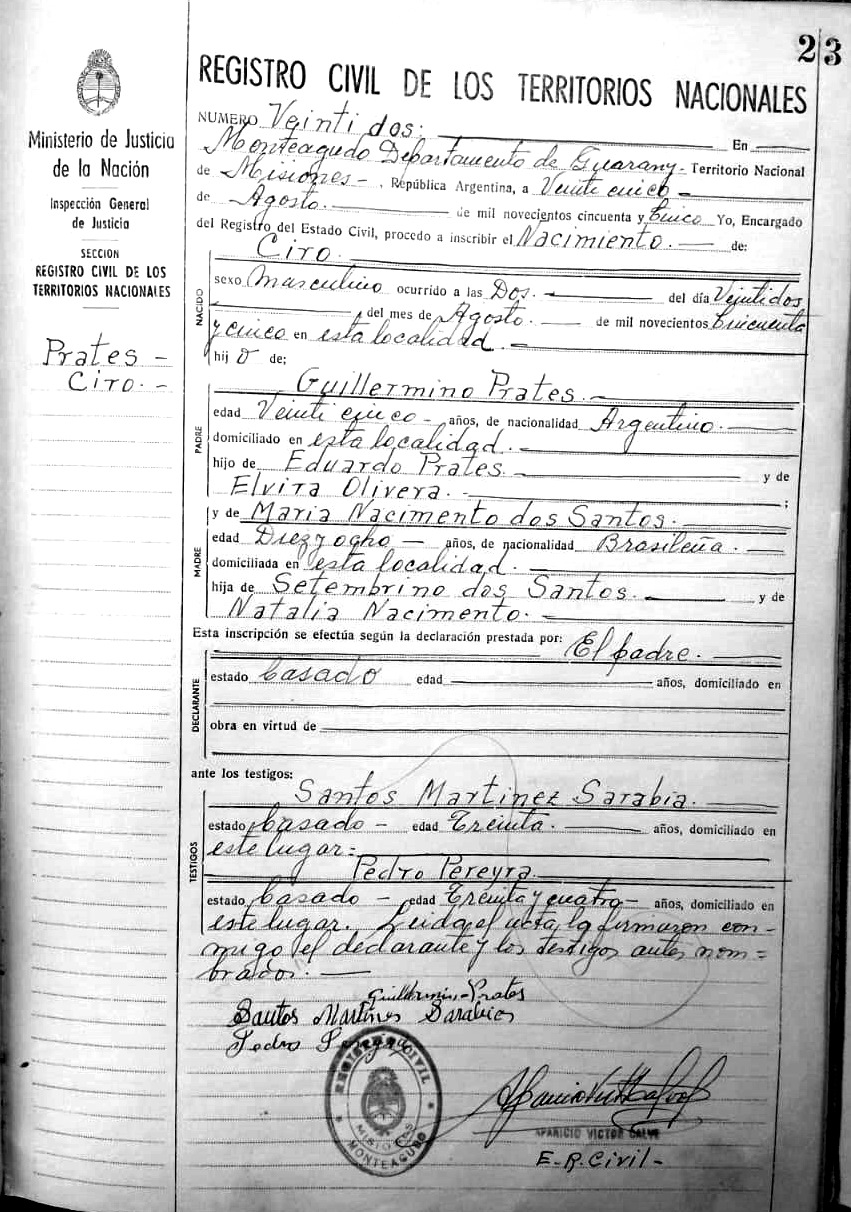 23
Ministerio de Justicia
de la Nación
Inspección General
de Justicia
SECCION
REGISTRO CIVIL DE LOS
TERRITORIOS NACIONALES
Prates -
Ciro. -
REGISTRO CIVIL DE LOS TERRITORIOS NACIONALES
NUMERO Veinti dos: En
Monteagudo Departamento de Guarany - Territorio Nacional
de Misiones - , República Argentina, a Veinte cinco -
de Agosto. de mil novecientos cincuenta y Cinco Yo, Encargado
del Registro del Estado Civil, procedo a inscribir el Nacimiento. - de:
Ciro.
NACIDO
sexo Masculino ocurrido a las Dos. del día Veintidos
, del mes de Agosto. de mil novecientos Cincuenta
y cinco en esta localidad. -
hij o de;
PADRE
Guillermino Prates. -
edad Veinti cinco - años, de nacionalidad Argentino.
domiciliado en esta localidad. -
hijo de Eduardo Prates. y de
Elvira Olivera. - ;
MADRE
y de Maria Nacimento dos Santos. -
edad Diez y ogho - años, de nacionalidad Brasileña. -
domiciliada en esta localidad. -
hija de Setembrino dos Santos. y de
Natalia Nacimento. -
Esta inscripción se efectúa según la declaración prestada por: El padre.
DECLARANTE
estado Casado edad años, domiciliado en
obra en virtud de
ante los testigos:
TESTIGOS
Santos Martinez Sarabia. -
estado Casado - edad Treinta. años, domiciliado en
este lugar:
Pedro Pereyra.
estado Casado - edad Treinta y cuatro - años, domiciliado en
este lugar. Leida el acta, la firmaron con-
migo, el declarante y los testigos antes nom=
brados. -
Guillermino Prates
Santos Martines Sarabia
Pedro Pereyra
REGISTRO CIVIL
MISIONES
MONTEAGUDO
APARICIO VICTOR CALVE
E. R. Civil -